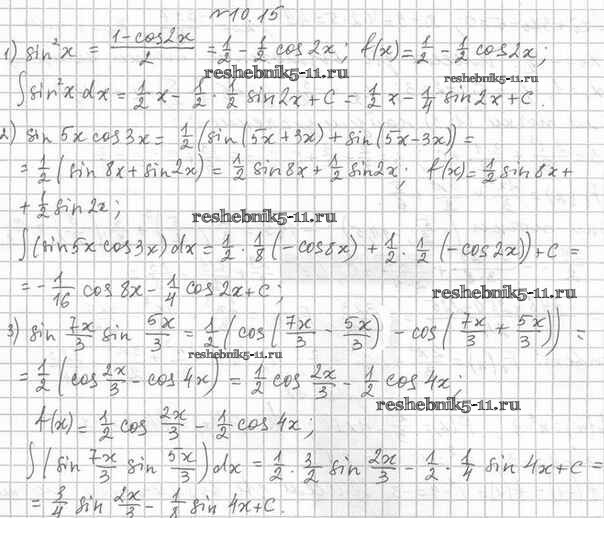 №10.15
1) sin²x = (1-cos2x)/2 = 1/2 - 1/2 cos 2x; f(x) = 1/2 - 1/2 cos2x;
reshebnik5-11.ru
∫sin²x·dx = 1/2 x - 1/2 · 1/2 sin2x + C = 1/2 x - 1/4 sin 2x + C.
2) sin 5x cos 3x = 1/2 (sin(5x+3x) + sin(5x-3x)) =
= 1/2 (sin 8x + sin2x) = 1/2 sin 8x + 1/2 sin2x; f(x) = 1/2 sin 8x +
+ 1/2 sin 2x;
reshebnik5-11.ru
∫(sin5x cos3x)dx = 1/2 · 1/8 (-cos8x) + 1/2 · 1/2 (-cos 2x)) + C =
= - 1/16 cos 8x - 1/4 cos 2x + C;
reshebnik5-11.ru
3) sin 7x/3 sin 5x/3 = 1/2 (cos(7x/3 - 5x/3) - cos(7x/3 + 5x/3)) =
reshebnik5-11.ru
= 1/2 (cos 2x/3 - cos 4x) = 1/2 cos 2x/3 - 1/2 cos 4x;
reshebnik5-11.ru
f(x) = 1/2 cos 2x/3 - 1/2 cos 4x;
∫(sin 7x/3 sin 5x/3)dx = 1/2 · 3/2 sin 2x/3 - 1/2 · 1/4 sin 4x + C =
= 3/4 sin 2x/3 - 1/8 sin 4x + C.